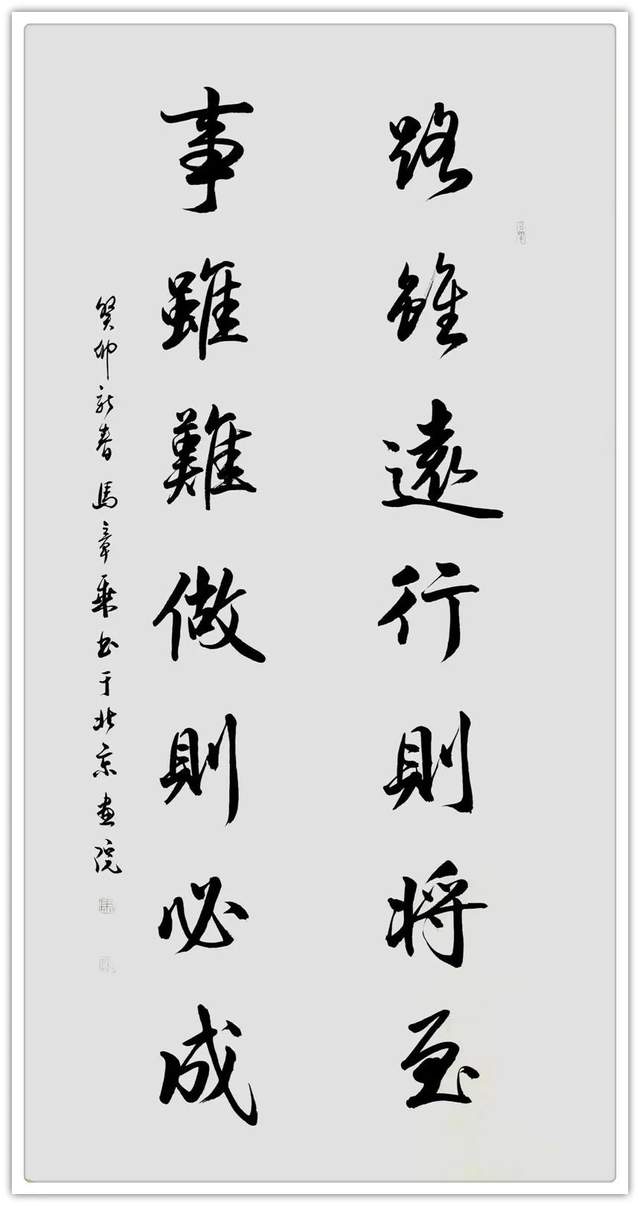 路雖遠行則將至
事雖難做則必成
癸卯新春馬章乘书于北京画院